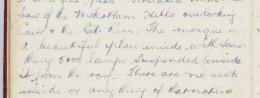 base of the Mokattam Hills overlooking
Cairo & the Nile River. The mosque is
a beautiful place inside, with some-
thing 500 lamps suspended inside
it from the roof. There are no seats
inside or any thing of that nature